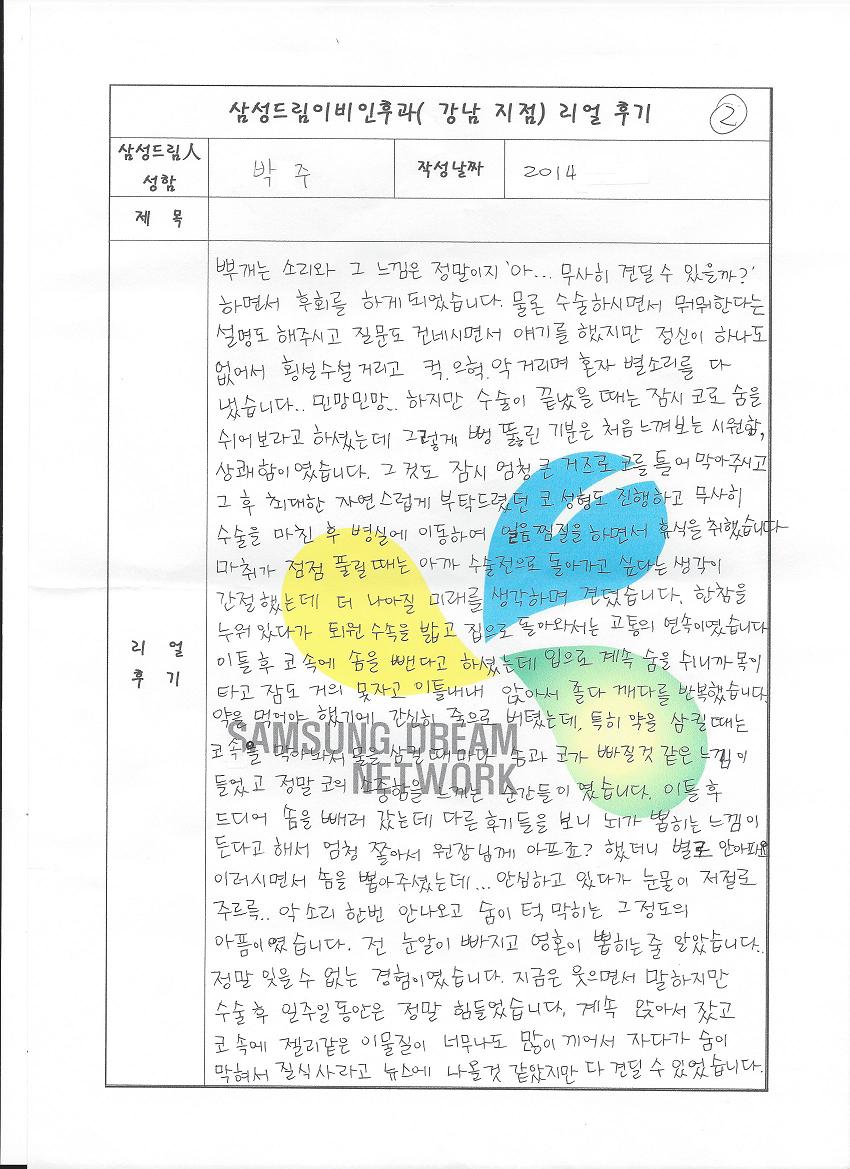 삼성드림이비인후과( 강남 지점) 리얼 후기
②
삼성드림人
성함
박 주
작성날짜
2014
제 목
리 얼
후 기
뿌개는 소리와 그 느낌은 정말이지 '아... 무사히 견딜 수 있을까?'
하면서 후회를 하게 되었습니다. 물론 수술하시면서 뭐뭐한다는
설명도 해주시고 질문도 건네시면서 얘기를 했지만 정신이 하나도
없어서 횡설수설 거리고 컥.으헉.악 거리며 혼자 별소리를 다
냈습니다.. 민망민망.. 하지만 수술이 끝났을 때는 잠시 코로 숨을
쉬어보라고 하셨는데 그렇게 뻥 뚫린 기분은 처음 느껴보는 시원함,
상쾌함이였습니다. 그것도 잠시 엄청 큰 거즈로 코를 틀어 막아주시고
그 후 최대한 자연스럽게 부탁드렸던 코 성형도 진행하고 무사히
수술을 마친 후 병실에 이동하여 얼음찜질을 하면서 휴식을 취했습니다
마취가 점점 풀릴 때는 아까 수술전으로 돌아가고 싶다는 생각이
간절했는데 더 나아질 미래를 생각하며 견뎠습니다. 한참을
누워 있다가 퇴원 수속을 밟고 집으로 돌아와서는 고통의 연속이였습니다
이틀 후 코 속에 솜을 뺀다고 하셨는데 입으로 계속 숨을 쉬니까 목이
타고 잠도 거의 못자고 이틀내내 앉아서 졸다 깨다를 반복했습니다.
약을 먹어야 했기에 간신히 죽으로 버텼는데, 특히 약을 삼킬 때는
코속을 막아놔서 물을 삼킬 때마다 솜과 코가 빠질것 같은 느낌이
들었고 정말 코의 소중함을 느끼는 순간들이였습니다. 이틀 후
드디어 솜을 빼러 갔는데 다른 후기들을 보니 뇌가 뽑히는 느낌이
든다고 해서 엄청 쫄아서 원장님께 아프죠? 했더니 별로 안아파요
이러시면서 솜을 뽑아주셨는데... 안심하고 있다가 눈물이 저절로
주르륵.. 악 소리 한번 안나오고 숨이 턱 막히는 그 정도의
아픔이였습니다. 전 눈알이 빠지고 영혼이 뽑히는 줄 알았습니다.
정말 잊을 수 없는 경험이였습니다. 지금은 웃으면서 말하지만
수술 후 일주일동안은 정말 힘들었습니다. 계속 앉아서 잤고
코 속에 젤리같은 이물질이 너무나도 많이 끼어서 자다가 숨이
막혀서 질식사라고 뉴스에 나올것 같았지만 다 견딜 수 있었습니다.
SAMSUNG DREAM
NETWORK